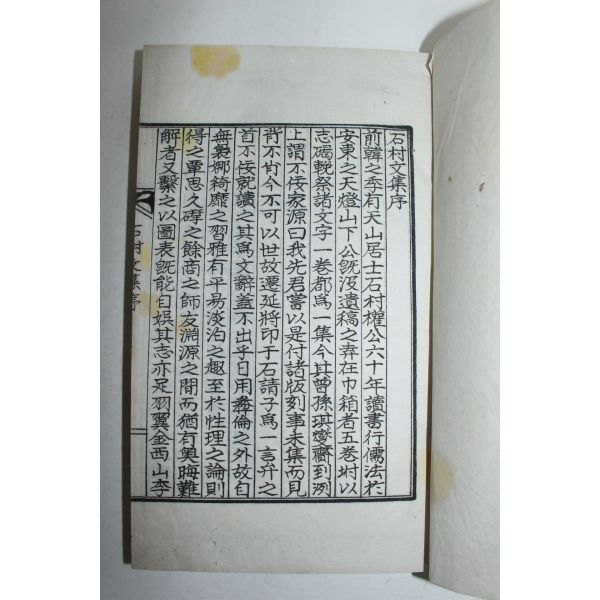 石村文集序
前韓之季有天山居士石村權公六十年讀書行儒法於
安東之天燈山下公旣沒遺稿之弆在巾箱者五卷坿以
志碣輓祭諸文字一卷都爲一集今其曾孫琪燮齎到洌
上謂不佞家源曰我先君嘗以是付諸版刻事未集而見
背不肖今不可以世故遷延將印于石請子爲一言弁之
首不佞就讀之其爲文辭蓋不出乎日用彜倫之外故自
無嫋娜綺靡之習雅有平易淡泊之趣至於性理之論則
得之覃思久礃之餘商之師友淵源之間而猶有奧晦難
解者又繫之以圖表旣能自娛其志亦足羽翼金西山李
石村文集序